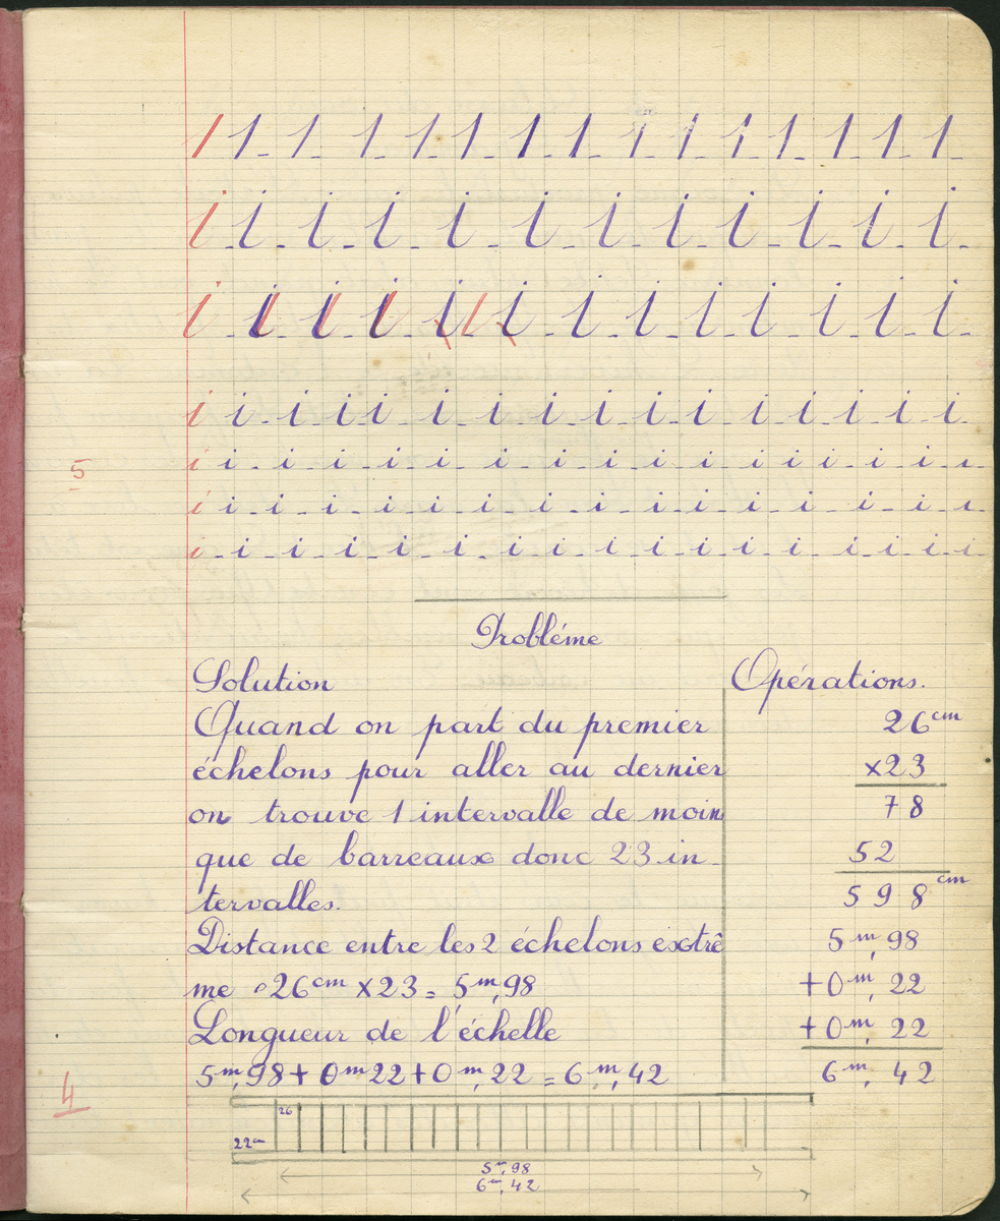 1 1 1 1 1 1 1 1 1 1 1 1 1 1 1
i i i i i i i i i i i i
i i i i i i i i i i i i i i
i i i i i i i i i i i i i i i
5
i i i i i i i i i i i i i i i i i
i i i i i i i i i i i i i i i i
i i i i i i i i i i i i i i i i
Probléme
Solution
Quand on part du premier
échelons pour aller au dernier
on trouve 1 intervalle de moin
que de barreaux donc 23 in-
tervalles.
Distance entre les 2 échelons extrê
me 26cm x 23 = 5m,98
Longueur de l'échelle
5m,98 + 0m22 + 0m,22 = 6m,42
Opérations.
26cm
x23
78
52
598cm
5m,98
+0m,22
+0m,22
6m,42
4
26
22cm
5m,98
6m,42